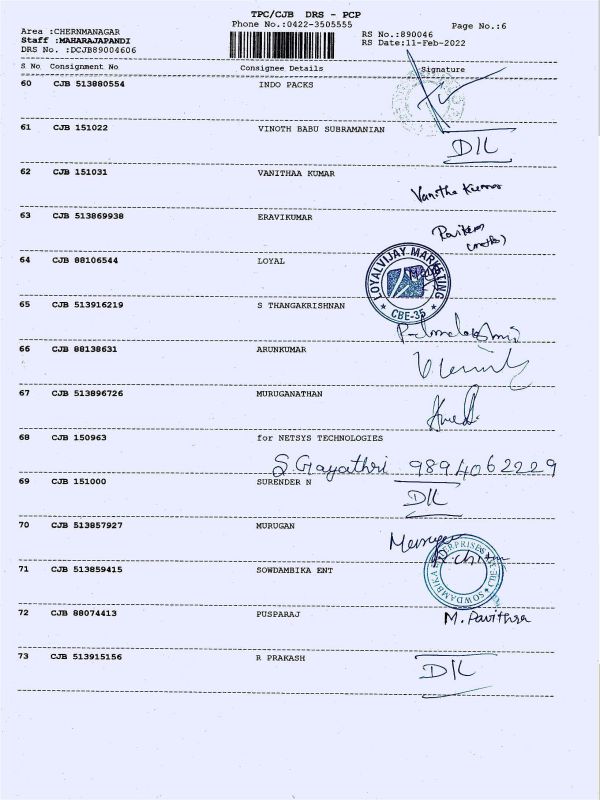 TPC/CJB DRS - PCP
Phone No.:0422-3505555
Page No.:6
Area :CHERNMANAGAR
RS No.:890046
Staff :MAHARAJAPANDI
RS Date:11-Feb-2022
DRS No. :DCJB89004606
S No Consignment No Consignee Details Signature
60 CJB 513880554 INDO PACKS
61 CJB 151022 VINOTH BABU SUBRAMANIAN
D/L
62 CJB 151031 VANITHAA KUMAR
Vanitha Kumar
63 CJB 513869938 ERAVIKUMAR
64 CJB 88106544 LOYAL
LOYALVIJAY MARKETING
CBE-35
65 CJB 513916219 S THANGAKRISHNAN
66 CJB 88138631 ARUNKUMAR
67 CJB 513896726 MURUGANATHAN
68 CJB 150963 for NETSYS TECHNOLOGIES
S. Gayathri 9894062229
69 CJB 151000 SURENDER N
D/L
70 CJB 513857927 MURUGAN
Murugan
71 CJB 513859415 SOWDAMBIKA ENT
SOWDAMBIKA ENTERPRISES
72 CJB 88074413 PUSPARAJ
M. Pavithra
73 CJB 513915156 R PRAKASH
D/L